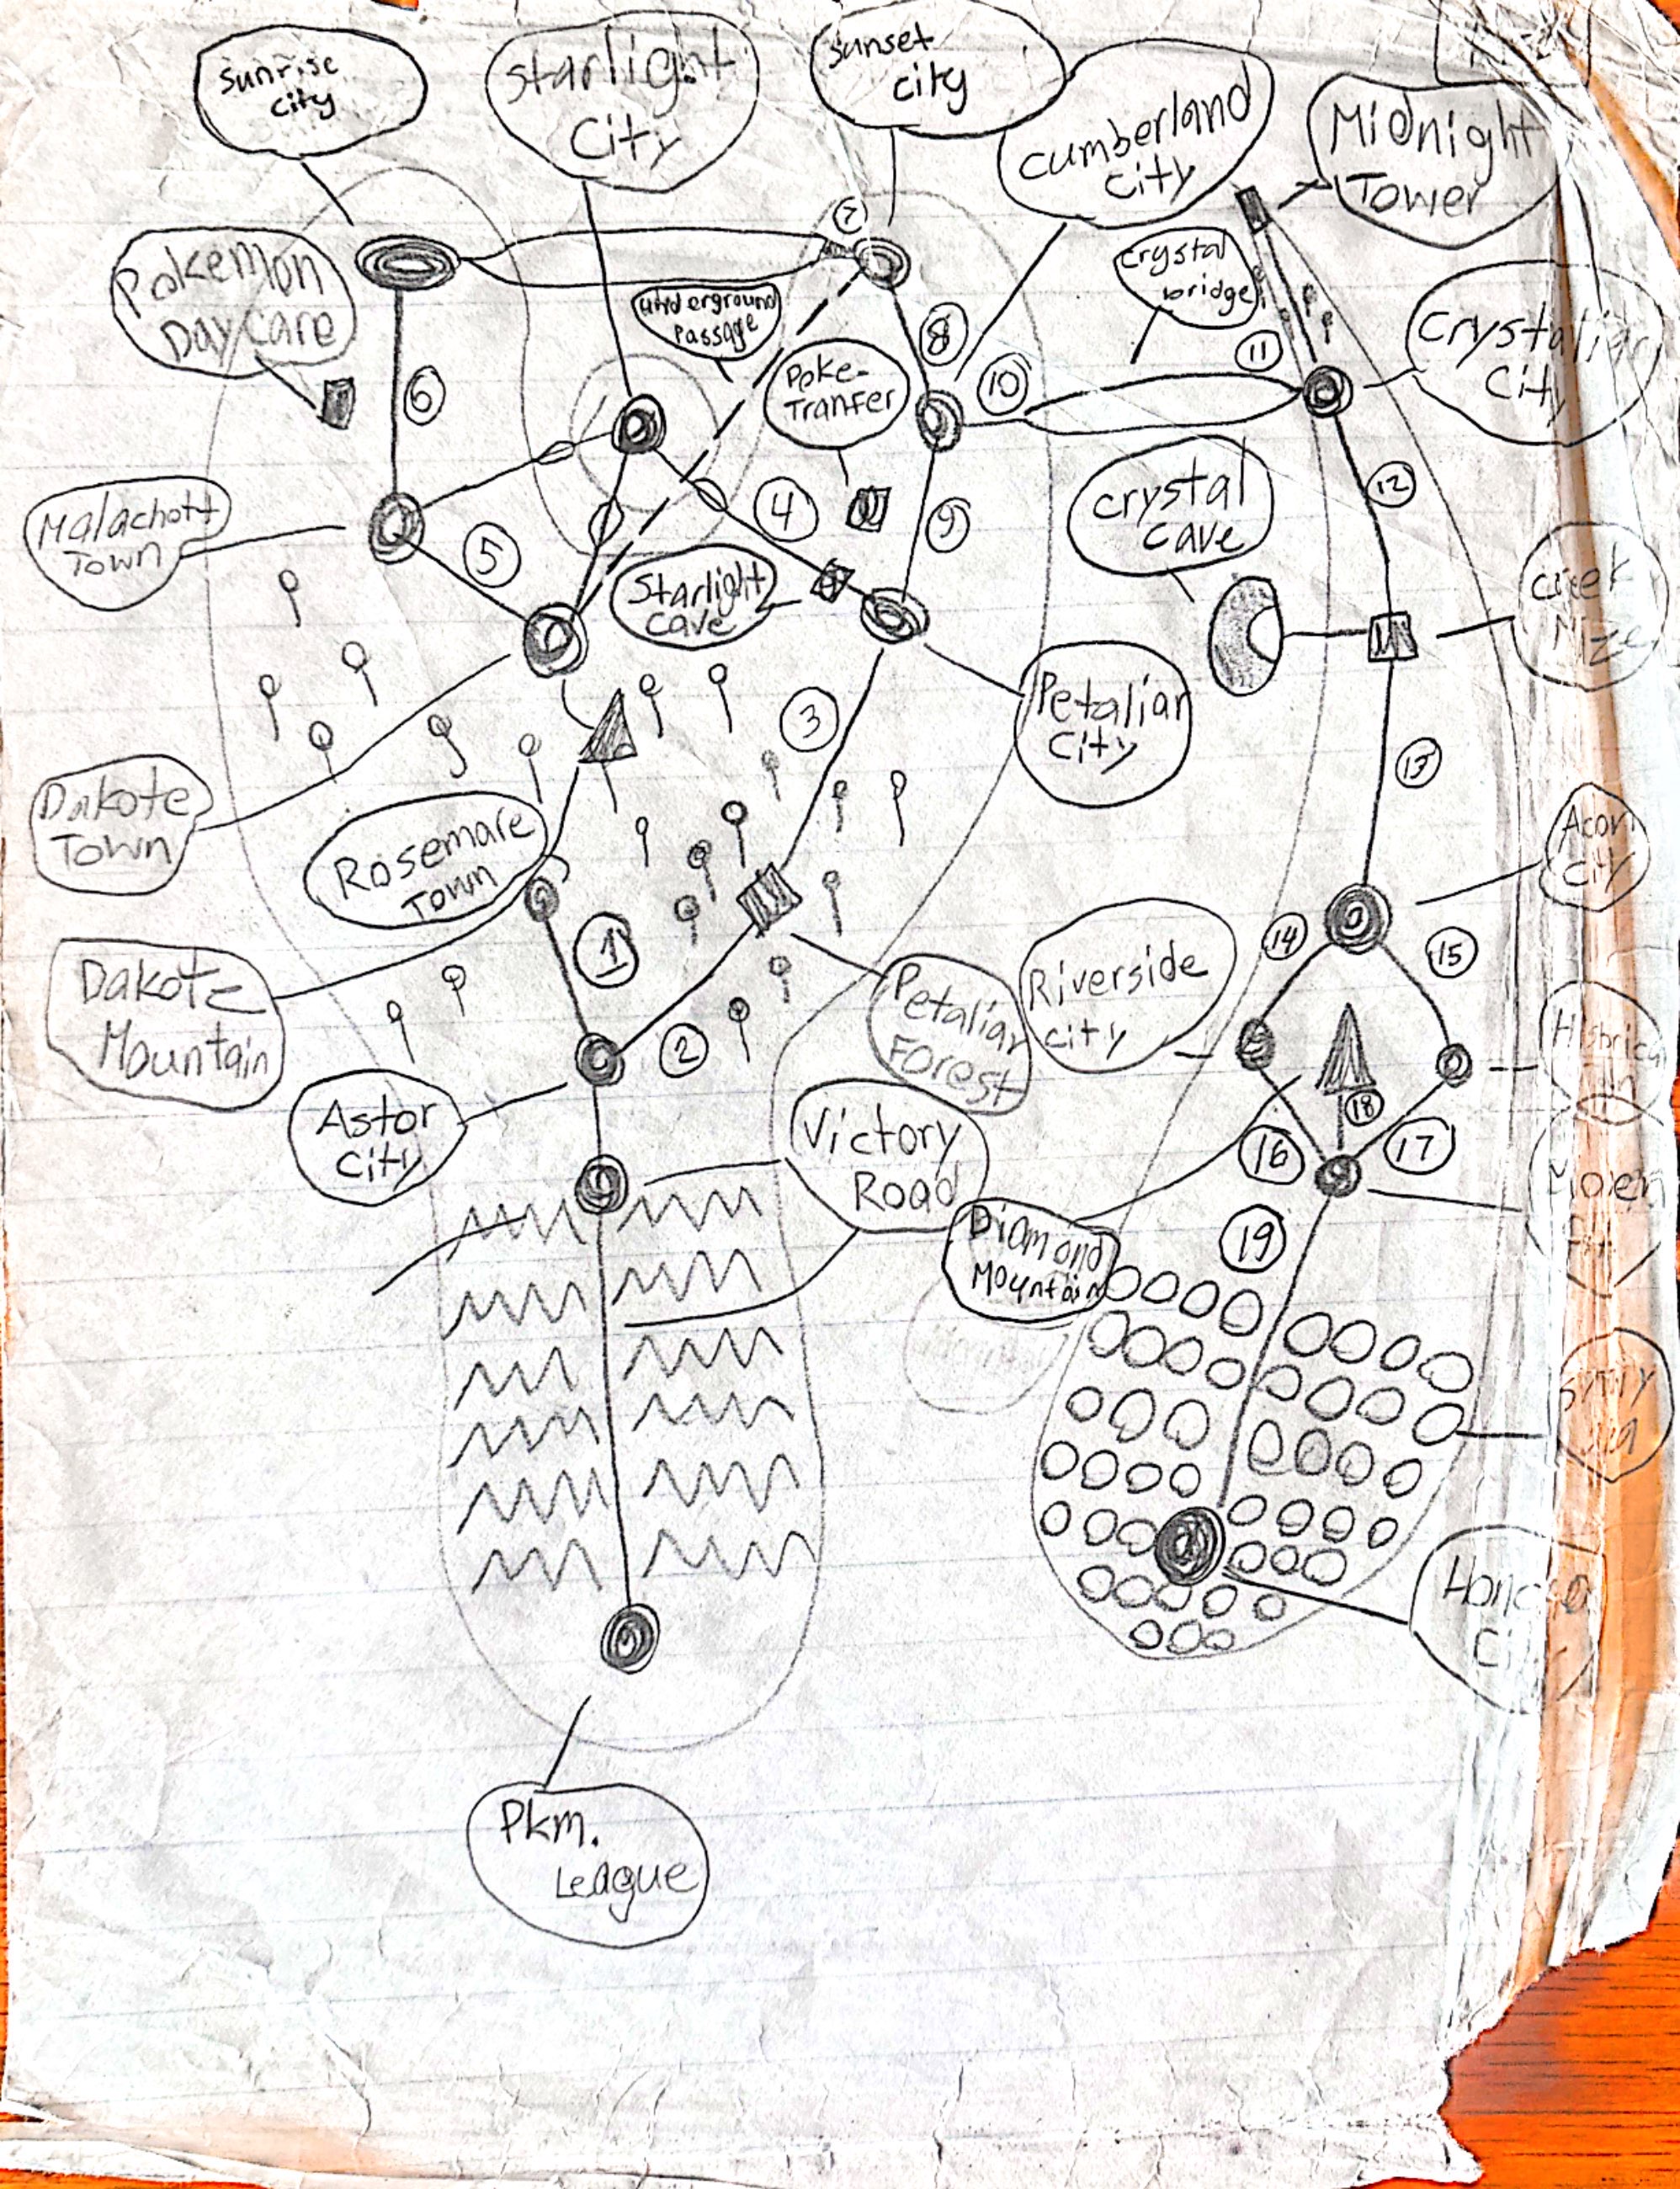 Sunrise
city
Starlight
City
Sunset
city
Cumberland
City
Midnight
Tower
Pokemon
DayCare
7
underground
Passage
crystal
bridge
6
Poke-
Tranfer
8
10
11
Crystalian
City
Malachott
Town
5
4
9
Crystal
cave
12
Starlight
cave
Creek
3
Petaliar
City
13
Dakote
Town
Rosemare
Town
Acorn
City
1
Dakote
Mountain
Petaliar
Forest
Riverside
city
14
15
2
Astor
City
Victory
Road
18
16
17
Diamond
Mountain
19
Pkm.
League